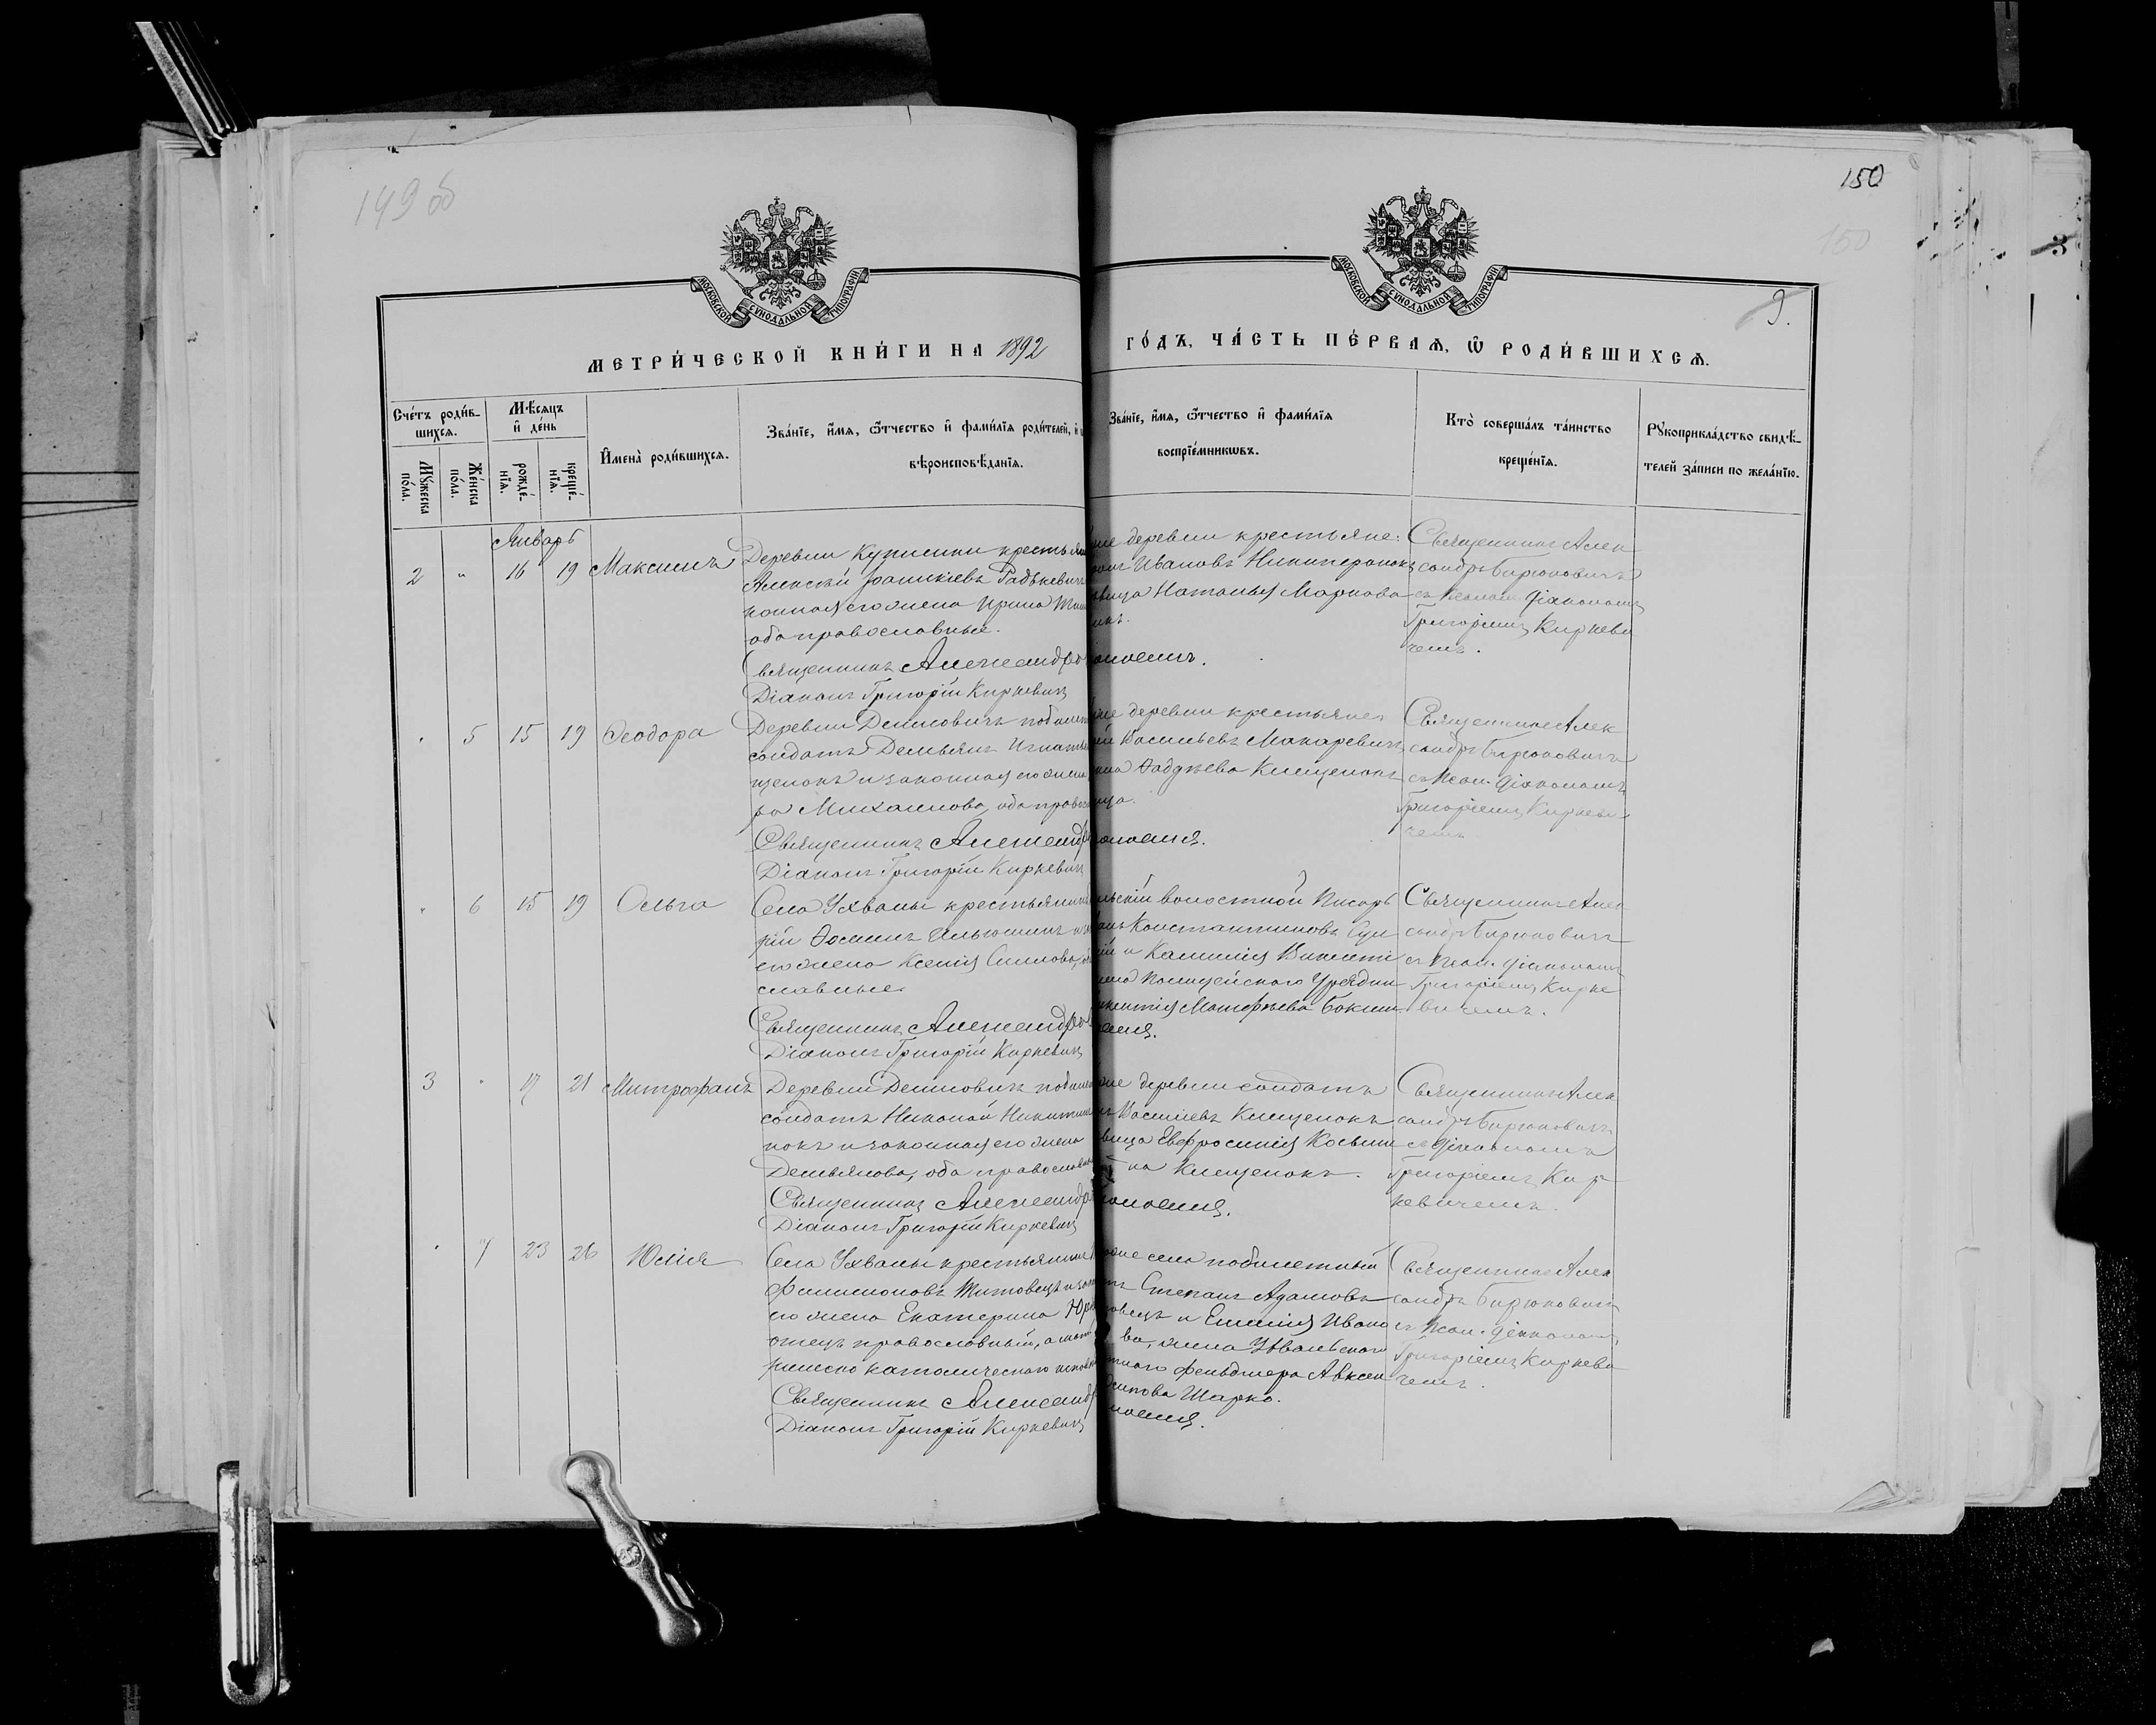 149 об
150
150
3
9.
МОСКОВСКОЙ СѴНОДАЛЬНОЙ ТИПОГРАФІИ
МОСКОВСКОЙ СѴНОДАЛЬНОЙ ТИПОГРАФІИ
МЕТРИ́ЧЕСКОЙ КНИ́ГИ НА 1892
ГО́ДЪ, ЧА́СТЬ ПЕ́РВАѦ, Ѡ РОДИ́ВШИХСѦ.
Сче́тъ роди́в-
шихсѧ.
Мꙋ́жеска по́ла.
Же́нска по́ла.
Мѣ́сѧцъ
и҆ де́нь
рожде́-
нїѧ.
креще́-
нїѧ.
И҆мена̀ роди́вшихсѧ.
Зва́нїе, и҆́мѧ, ѻ҆́тчество и҆ фами́лїѧ роди́телей, и҆
вѣроисповѣ́данїѧ.
Зва́нїе, и҆́мѧ, ѻ҆́тчество и҆ фами́лїѧ
воспрїе́мникѡвъ.
Кто̀ соверша́лъ та́инство
креще́нїѧ.
Рꙋкоприкла́дство свидѣ́-
телей за́писи по жела́нїю.
Январь
2 " 16 19 Максимъ
Деревни Купленки крестьян
Алексѣй Іоанникіевъ Радькевич
конная его жена Ирина
оба православные.
Священникъ Александръ
Діаконъ Григорій Киркевичъ
же деревни крестьяне:
Ивановъ
вица Наталья Маркова
Священникъ Алек
сандръ Бирюковичъ
съ псал. діакономъ
Григоріемъ Киркеви
чемъ.
" 5 15 19 Ѳеодора
Деревни Денисовичъ побилет
солдатъ Демьянъ Игнать
щенокъ и законная его жен
ра Михаилова, оба правос
Священникъ Александр
Діаконъ Григорій Киркевичъ
же деревни крестьяне,
Васильевъ Макаревичъ
Ѳаддѣева Клищенокъ
Священникъ Алек
сандръ Бирюковичъ
съ псал. діакономъ
Григоріемъ Киркеви
чемъ.
" 6 15 19 Ольга
Села Ухвалы крестьянинъ
рій Ѳоминъ Ильюшинъ и
его жена Ксенія
славные.
Священникъ Александръ
Діаконъ Григорій Киркевичъ
волостной Писарь
Константиновъ
и Камилія Викенті
жена Полицейскаго Урядни
Матѳѣева
Священникъ Алек
сандръ Бирюковичъ
съ псал. діакономъ
Григоріемъ Кирке
вичемъ.
3 " 17 21 Митрофанъ
Деревни Денисовичъ побиле
солдатъ Николай Никитинъ
нокъ и законная его жена
Демьянова, оба православ
Священникъ Александръ
Діаконъ Григорій Киркевичъ
же деревни солдатъ
Васильевъ Клищенокъ
вица Евфросинія Косьми
на Клищенокъ.
Священникъ Алек
сандръ Бирюковичъ
съ діакономъ
Григоріемъ Кир
кевичемъ.
" 7 23 26 Юлія
Села Ухвалы крестьянинъ
Филимоновъ Титовецъ и зак
его жена Екатерина
отецъ православный, а мать
римско католическаго испов
Священникъ Александр
Діаконъ Григорій Киркевичъ
же села побилетный
Степанъ Адамовъ
товецъ и Емилія Ивано
ва, жена Ухвальскаго
фельдшера Авксен
Шарко.
Священникъ Алек
сандръ Бирюковичъ
съ псал. діакономъ
Григоріемъ Киркеви
чемъ.